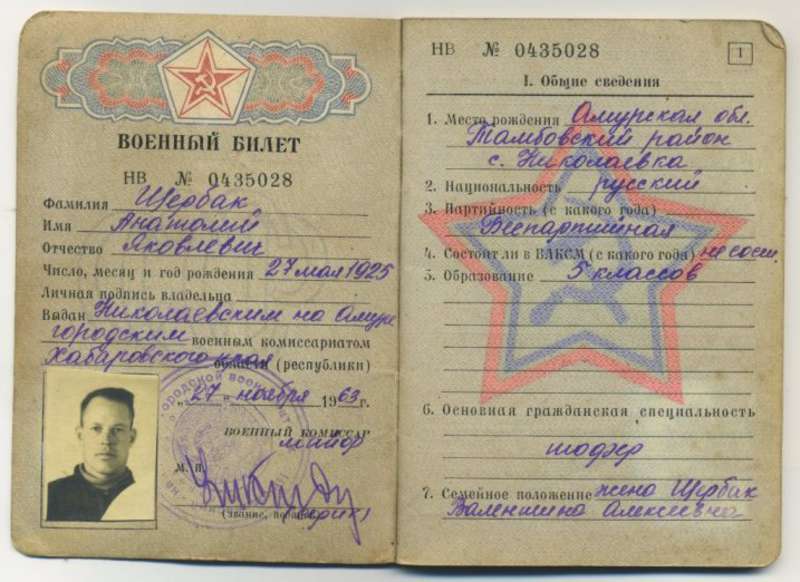 ВОЕННЫЙ БИЛЕТ
НВ № 0435028
Фамилия Щербак
Имя Анатолий
Отчество Яковлевич
Число, месяц и год рождения 27 мая 1925
Личная подпись владельца
Выдан Николаевским на Амуре
городским военным комиссариатом
Хабаровского края области (республики)
„27" ноября 1963 г.
ВОЕННЫЙ КОМИССАР
майор
М. П.
(звание, подпись)
НВ № 0435028
1
I. Общие сведения
1. Место рождения Амурская обл.
Тамбовский район
с. Николаевка
2. Национальность русский
3. Партийность (с какого года)
Беспартийная
4. Состоит ли в ВЛКСМ (с какого года) не сост.
5. Образование 5 классов
6. Основная гражданская специальность
7. Семейное положение жена Щербак
Валентина Алексеевна